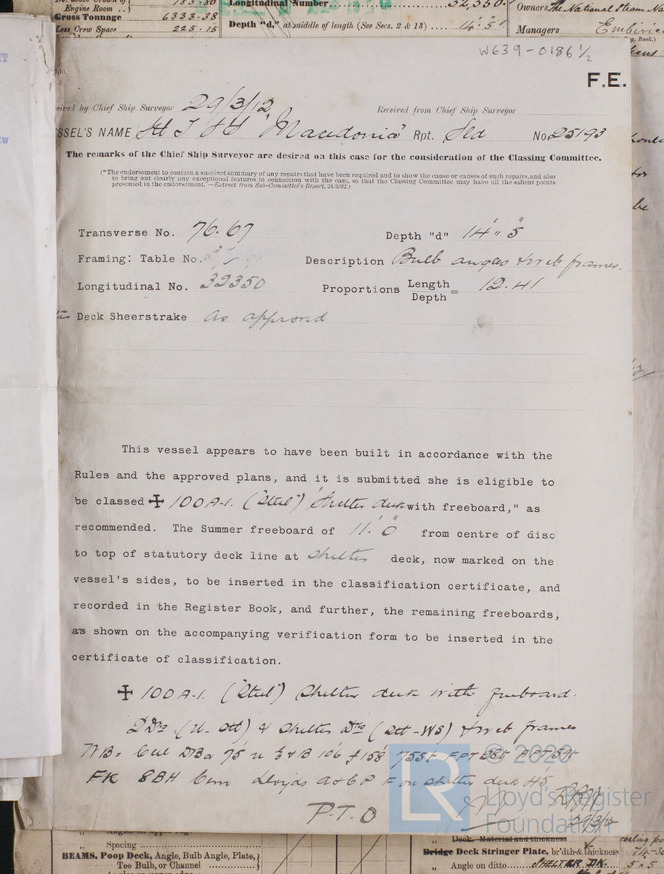 Engine Room
Gross Tonnage 6333.38
Less Crew Space 225.15
Longitudinal Number
Depth "d," at middle of length (See Secs. 2 & 13) 14'.5"
Owners The National Steam Na
Managers Embiric
W639-0186 1/2
F.E.
eived by Chief Ship Surveyor 29/3/12 Received from Chief Ship Surveyor
ESSEL'S NAME "Macedonia" Rpt. Sld No. 25193
The remarks of the Chief Ship Surveyor are desired on this case for the consideration of the Classing Committee.
(*The endorsement to contain a succinct summary of any repairs that have been required and to show the cause or causes of such repairs, and also
to bring out clearly any exceptional features in connection with the case, so that the Classing Committee may have all the salient points
presented in the endorsement."—Extract from Sub-Committee's Report,
Transverse No. 76.67 Depth "d" 14'.. 5"
Framing: Table No. Description Bulb angles & web frames.
Longitudinal No. 32350 Proportions Length/Depth = 12.41
Deck Sheerstrake as approved
This vessel appears to have been built in accordance with the
Rules and the approved plans, and it is submitted she is eligible to
be classed ✠ 100A.1. ("Steel") "Shelter deck with freeboard," as
recommended. The Summer freeboard of 11'.0" from centre of disc
to top of statutory deck line at Shelter deck, now marked on the
vessel's sides, to be inserted in the classification certificate, and
recorded in the Register Book, and further, the remaining freeboards,
as shown on the accompanying verification form to be inserted in the
certificate of classification.
✠ 100A.1. ("Steel") Shelter deck with freeboard.
2 Dks & Shelter Dk & web frames
FK 8BH Cem Lloyds A&CP on shelter deck
P.T.O
© 2020
LR
Lloyd's Register
Foundation
Spacing
BEAMS, Poop Deck, Angle, Bulb Angle, Plate,
Tee Bulb, or Channel
Deck. Material and thickness
Bridge Deck Stringer Plate, br'dth & thickness
Angle on ditto SHELTER DK. 5 x 5